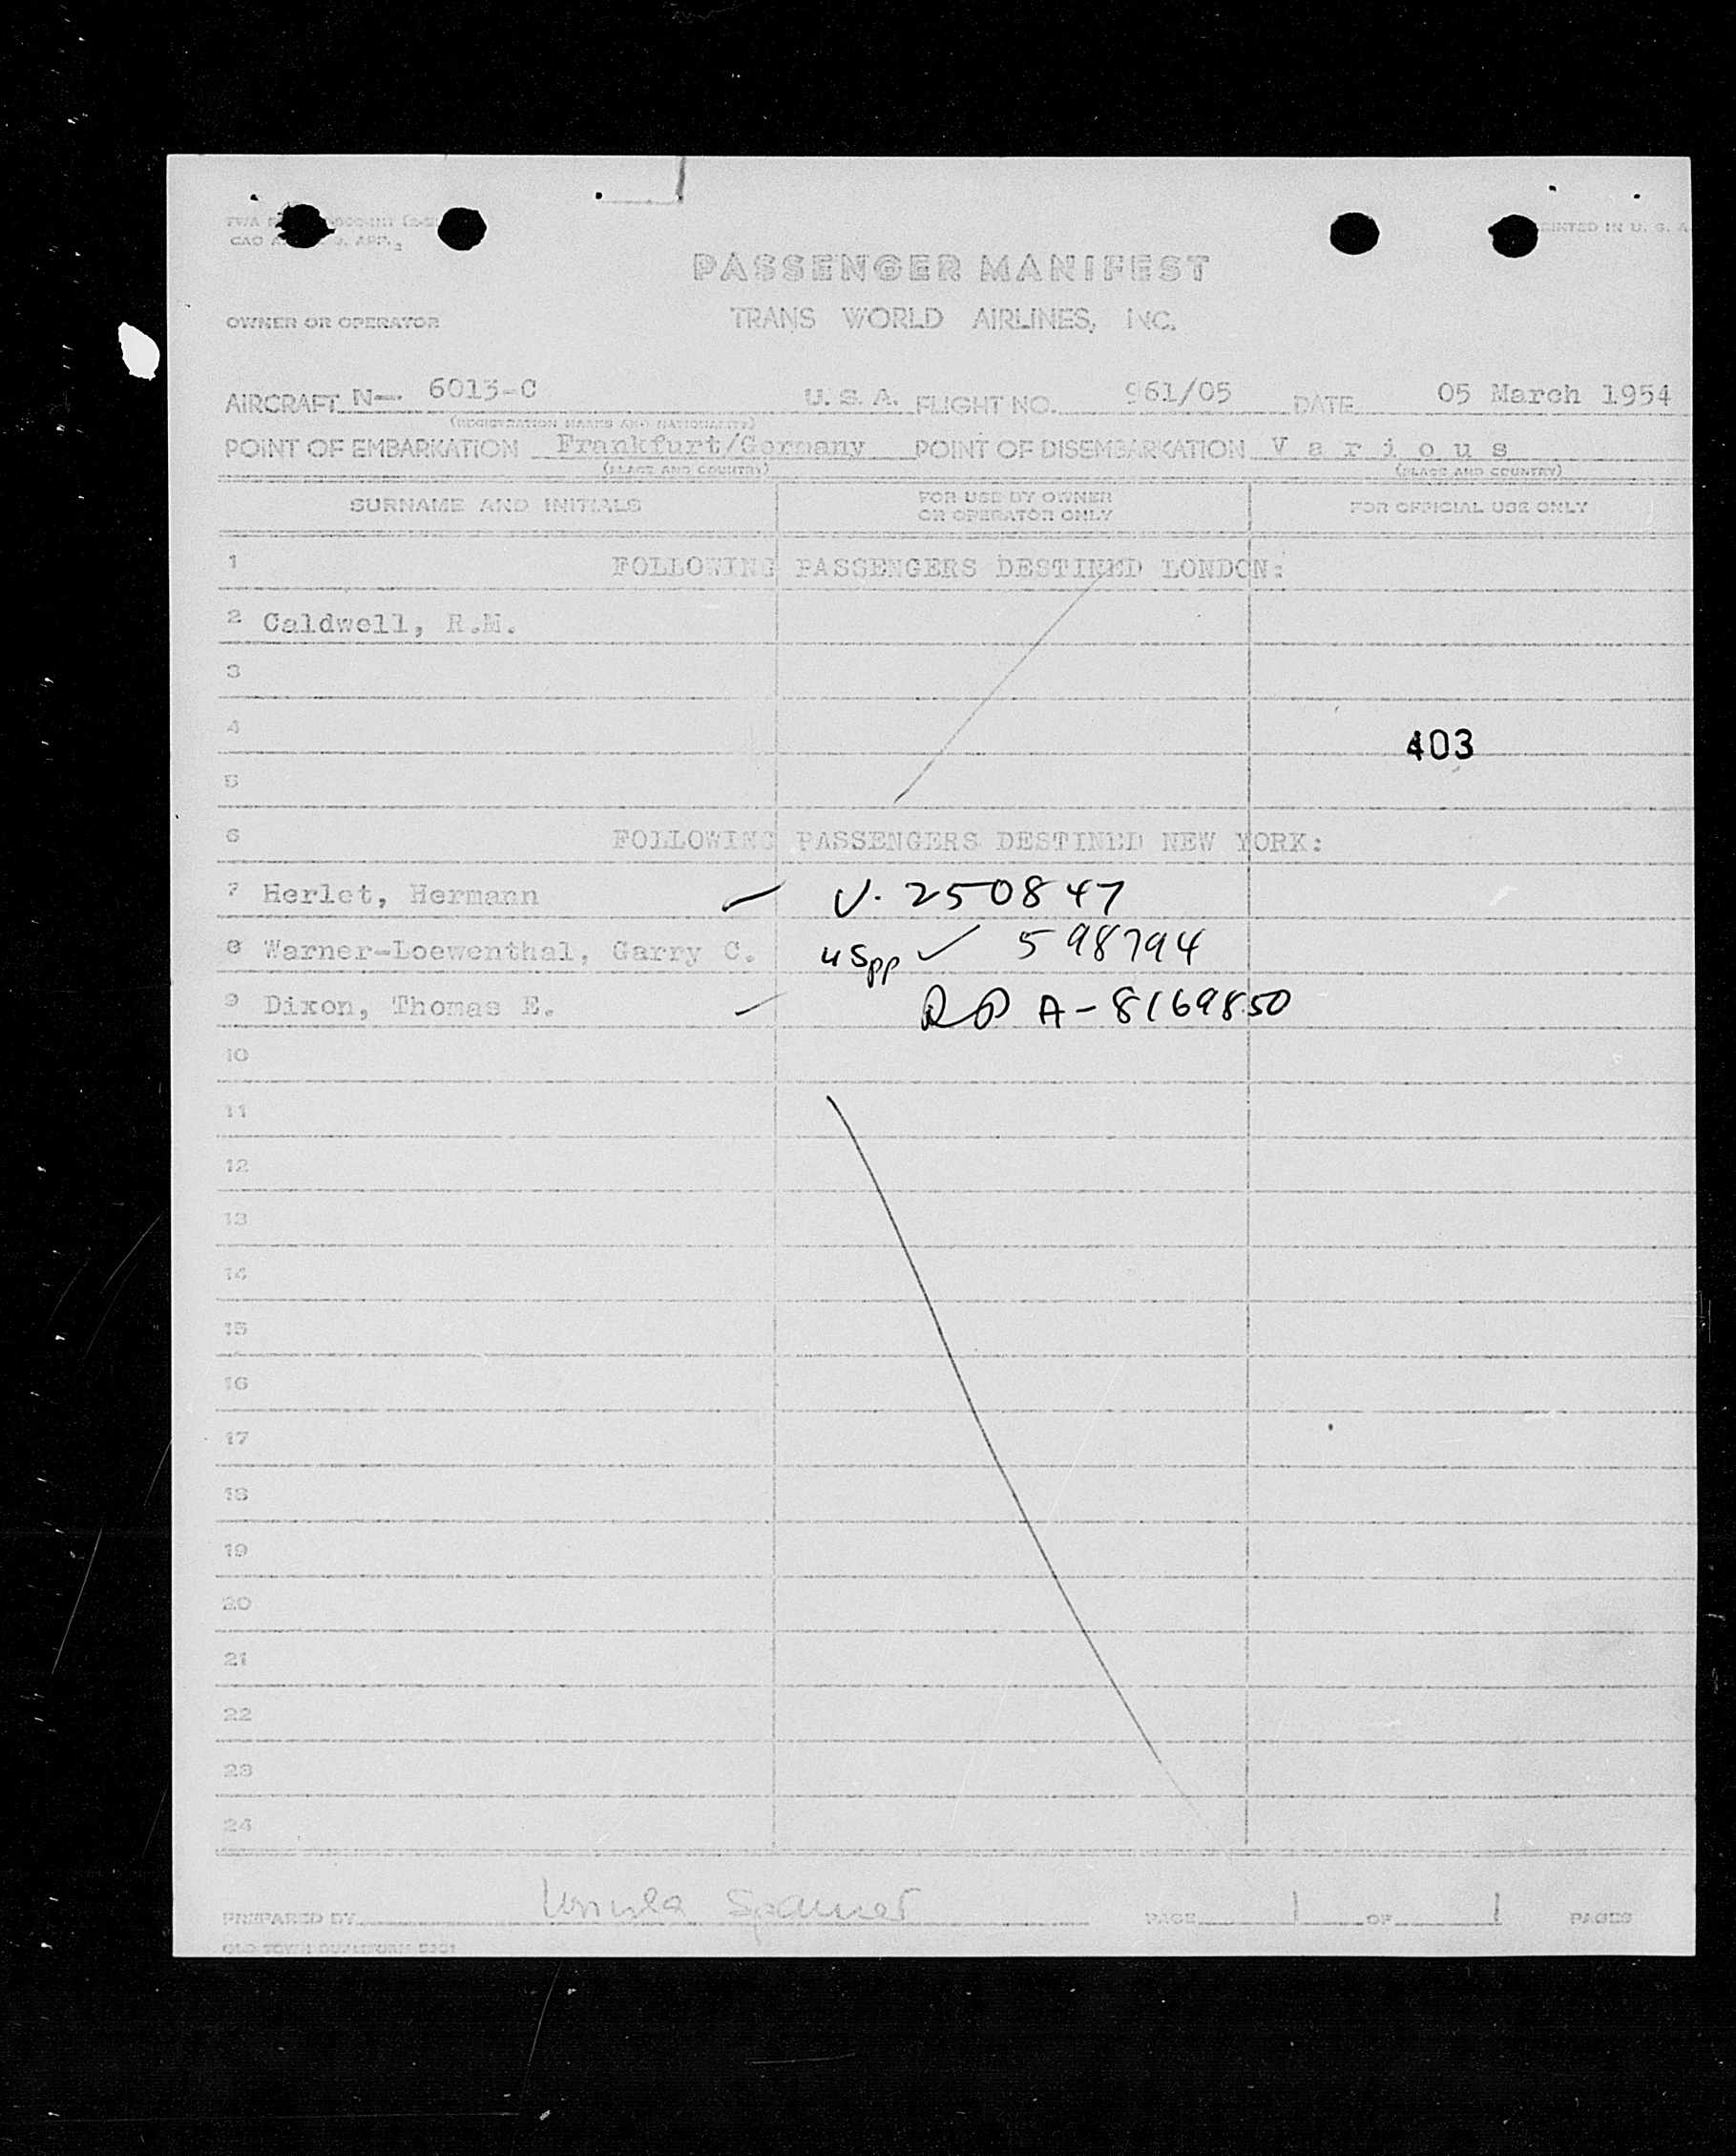 PRINTED IN U. S. A.
PASSENGER MANIFEST
OWNER OR OPERATOR TRANS WORLD AIRLINES, INC.
AIRCRAFT N—. 6013-C U. S. A. FLIGHT NO. 961/05 DATE 05 March 1954
(REGISTRATION MARKS AND NATIONALITY)
POINT OF EMBARKATION Frankfurt/Germany POINT OF DISEMBARKATION V a r i o u s
(PLACE AND COUNTRY) (PLACE AND COUNTRY)
SURNAME AND INITIALS FOR USE BY OWNER OR OPERATOR ONLY FOR OFFICIAL USE ONLY
1 FOLLOWING PASSENGERS DESTINED LONDON:
2 Caldwell, R.M.
3
4 403
5
6 FOLLOWING PASSENGERS DESTINED NEW YORK:
7 Herlet, Hermann V. 250847
8 Warner-Loewenthal, Garry C. US pp ✓ 598794
9 Dixon, Thomas E. A-8169850
10
11
12
13
14
15
16
17
18
19
20
21
22
23
24
PREPARED BY Ursula Spamer PAGE 1 OF 1 PAGES